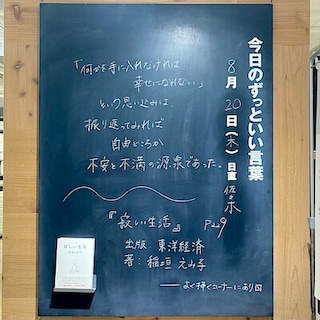 今日のずっといい言葉
8月20日(木)日直 佐々木
「何かを手に入れなければ
幸せになれない」
という思い込みは、
振り返ってみれば
自由どころか
不安と不満の源泉であった。
『寂しい生活』 P229
出版 東洋経済
著: 稲垣えみ子
よく輝くコーナーにあり
寂しい生活